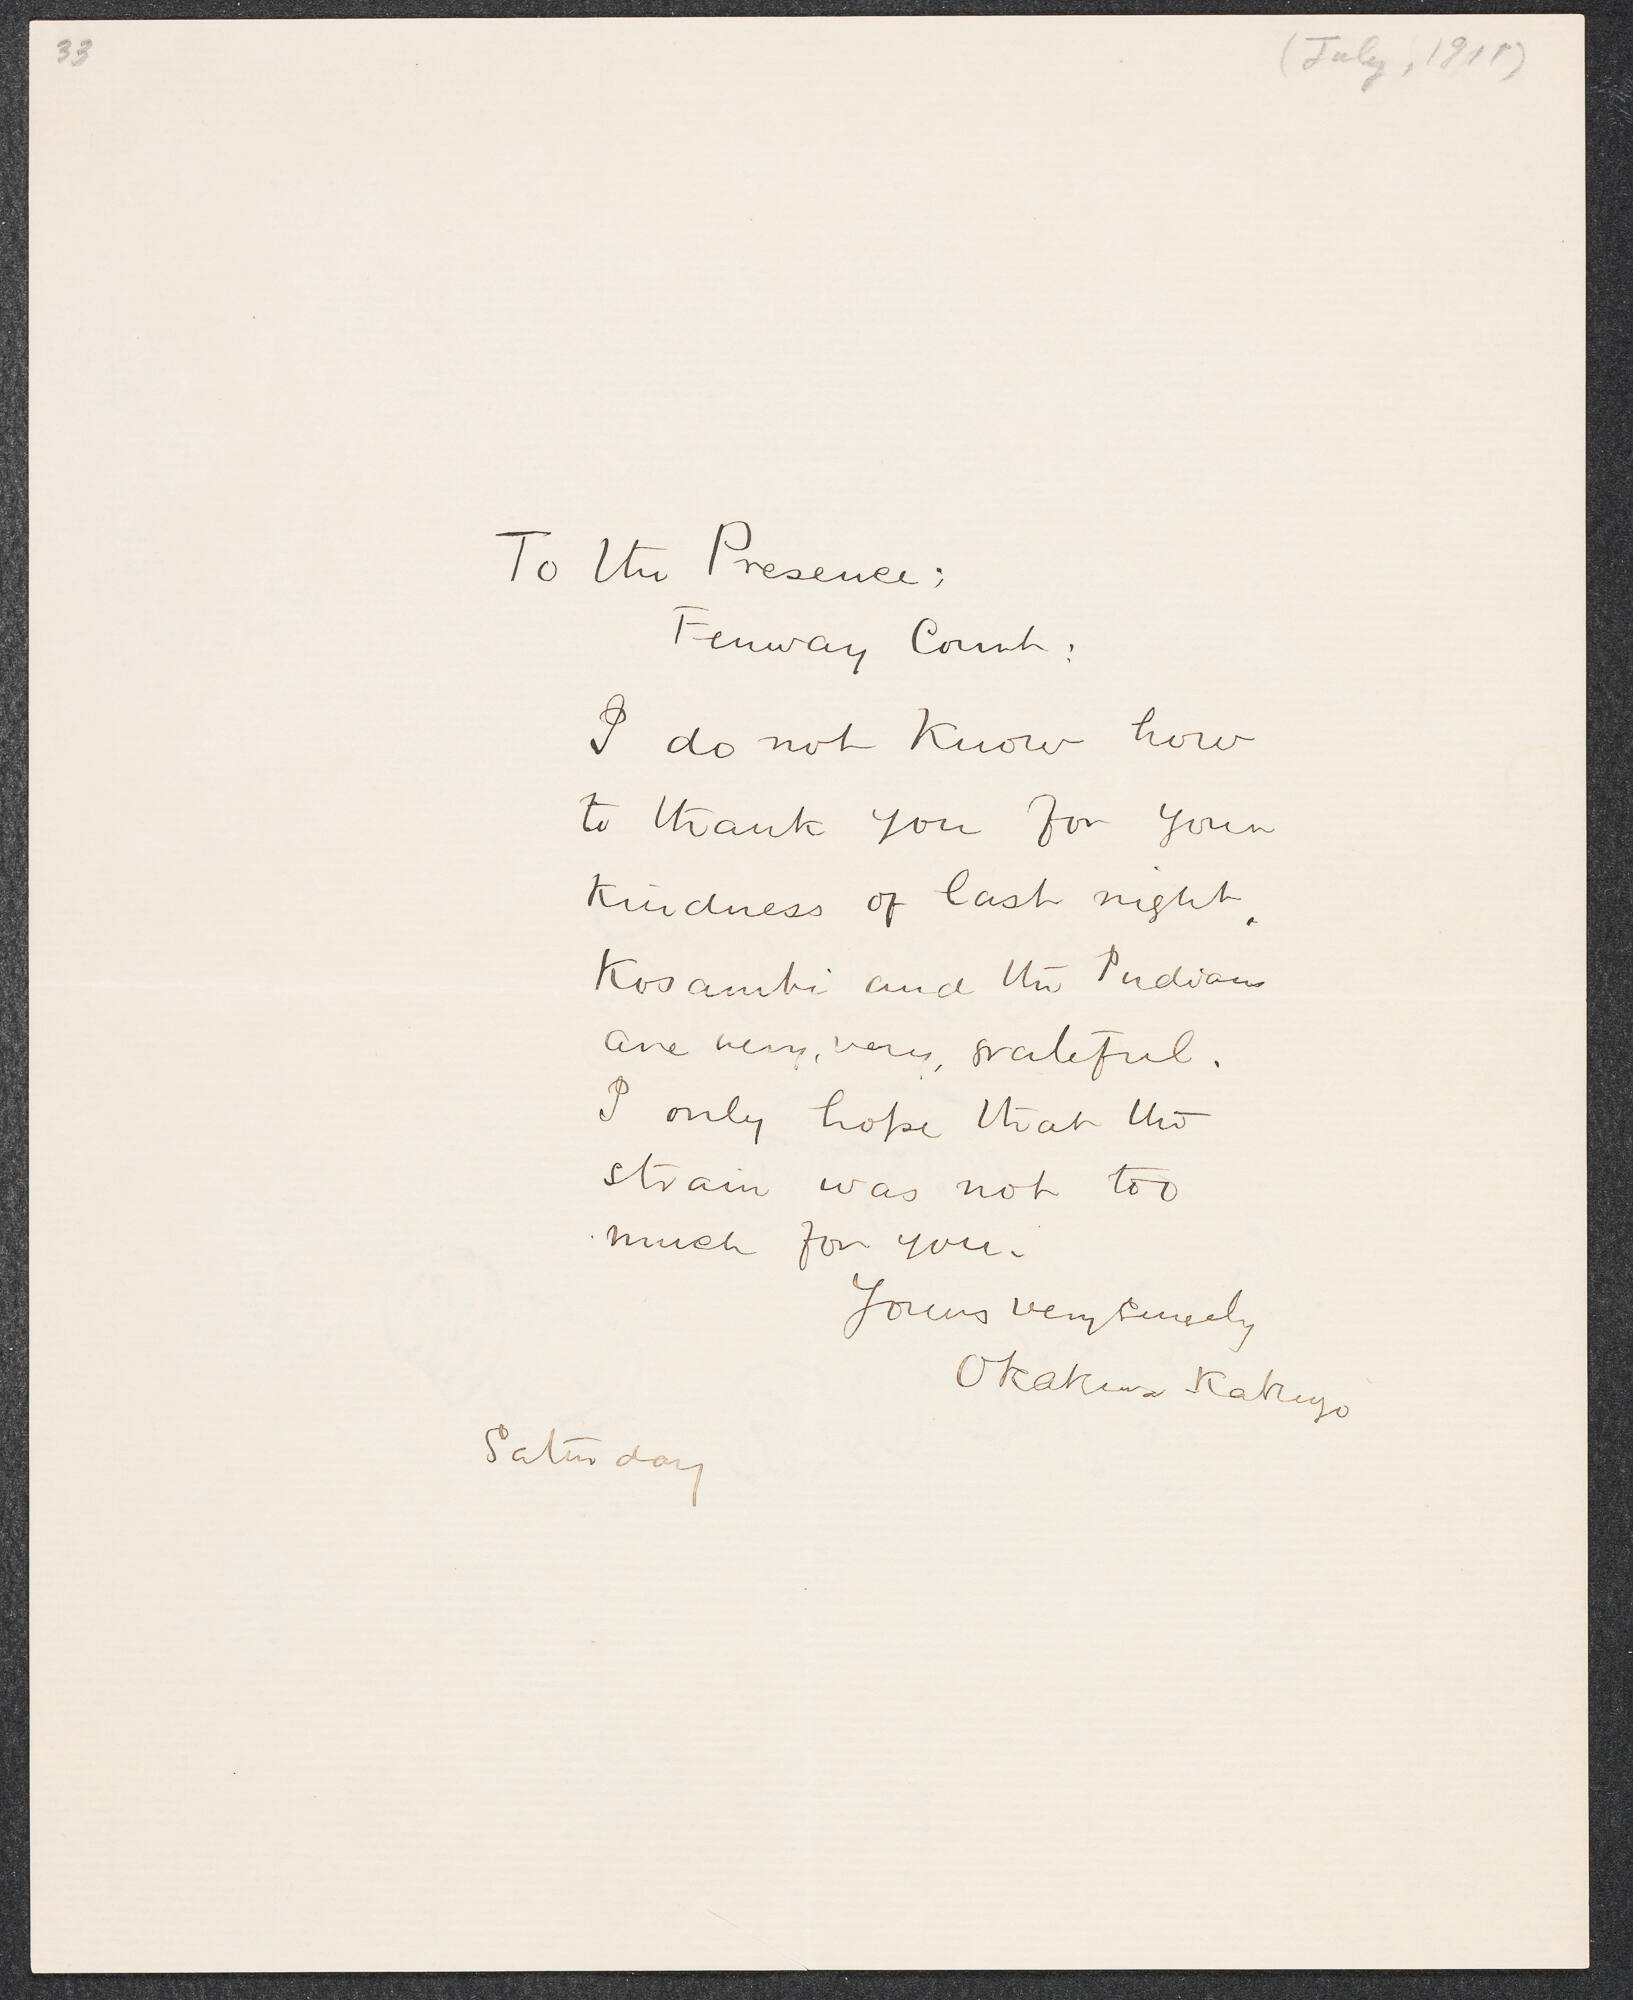 33
(July, 1911)
To the Presence:
Fenway Court:
I do not know how
to thank you for your
kindness of last night.
Kosambi and the Indians
are very, very, grateful.
I only hope that the
strain was not too
much for you.
Yours very sincely
Okakura Kakuzo
Saturday